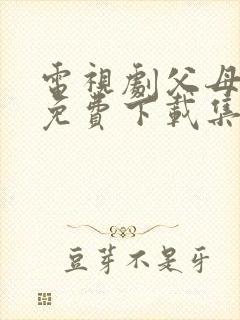 電視劇父母
免費下載集
豆芽不是牙